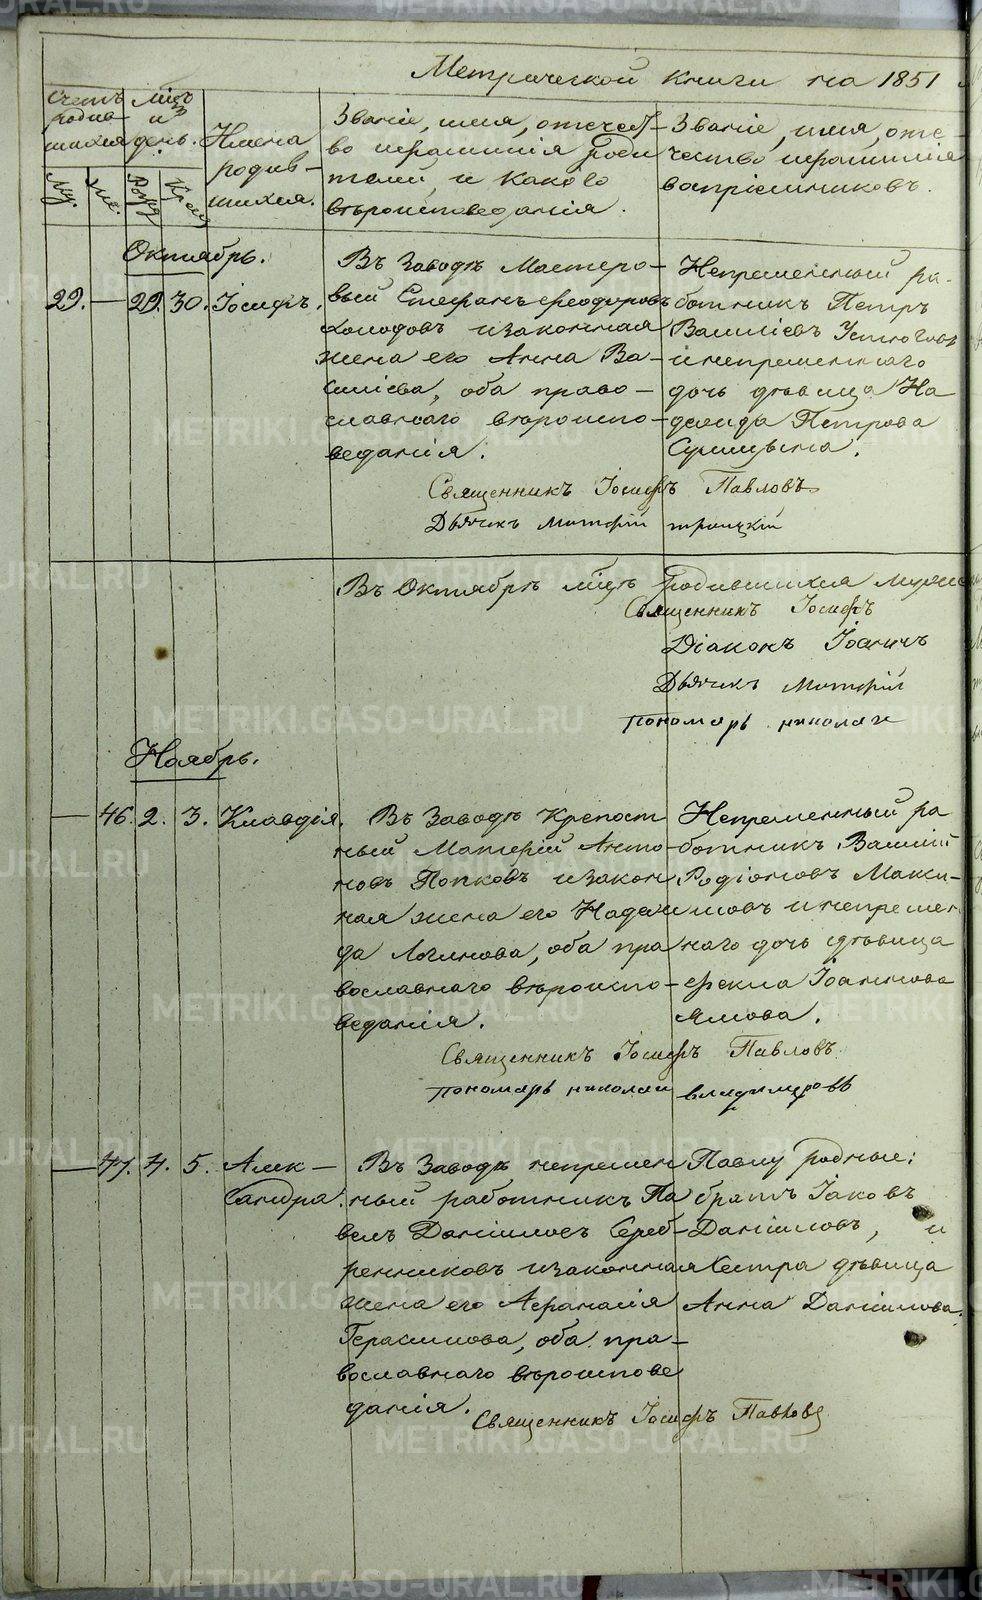 Метрической книги на 1851
Счетъ родившихся
Мѣс. и день.
Имена родившихся.
Званіе, имя, отечество и фамилія родителей, и какого вѣроисповеданія.
Званіе, имя, отечество и фамилія воспріемниковъ.
Муж.
Жен.
Рожд.
Крещ.
Октябрь.
29. — 29. 30. Іосифъ.
Въ Заводѣ Мастеро-
вый Стефанъ Феодоровъ
Холодовъ и законная
жена его Анна Ва-
силіева, оба право-
славнаго вѣроиспо-
веданія.
Непременный ра-
ботникъ Петръ
Василіевъ Устюговъ
и непременнаго
дочь дѣвица На
дежда Петрова
Священникъ Іосифъ Павловъ
Дьячикъ Матфій Троицкій
Въ Октябрѣ мѣсцѣ родившихся мужес
Священникъ Іосифъ
Діаконъ Іоаннъ
Дьячикъ Матфій
Пономарь Николай
Ноябрь.
— 46. 2. 3. Клавдія.
Въ Заводѣ Крепост
ный Матѳей Анто-
новъ Попковъ и закон
ная жена его Надеж
да Логинова, оба пра
вославнаго вѣроиспо-
веданія.
Непременный ра
ботникъ Василій
Родіоновъ Макси-
мовъ и непремен
наго дочь дѣвица
Фекла Іоаннова
Ямова.
Священникъ Іосифъ Павловъ
Пономарь Николай Владимировъ
— 47. 4. 5. Алек-
сандра.
Въ Заводѣ непремен
ный работникъ Па
велъ Даніиловъ Сереб-
ренниковъ и законная
жена его Афанасія
Герасимова, оба пра-
вославнаго вѣроиспове
данія.
Павлу родные:
братъ Іаковъ
Даніиловъ, и
сестра дѣвица
Анна Даніилова.
Священникъ Іосифъ Павловъ
METRIKI.GASO-URAL.RU